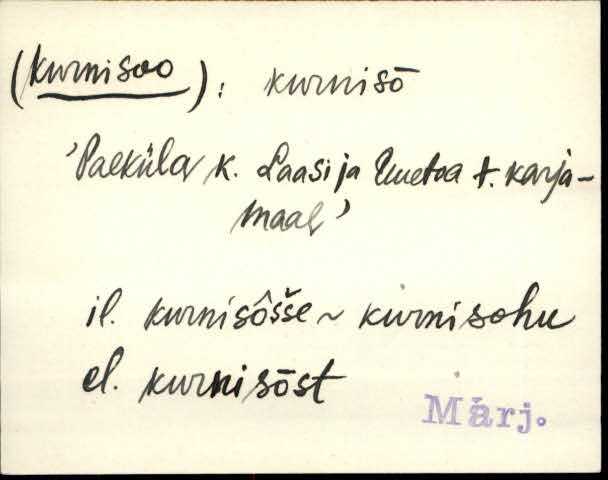 (kurnisoo): kurnisō
'Paeküla k. Laasi ja Uuetoa t. karja-
maal'
il. kurnisô̄šše ~ kurnisohu
el. kurnisōst
Märj.